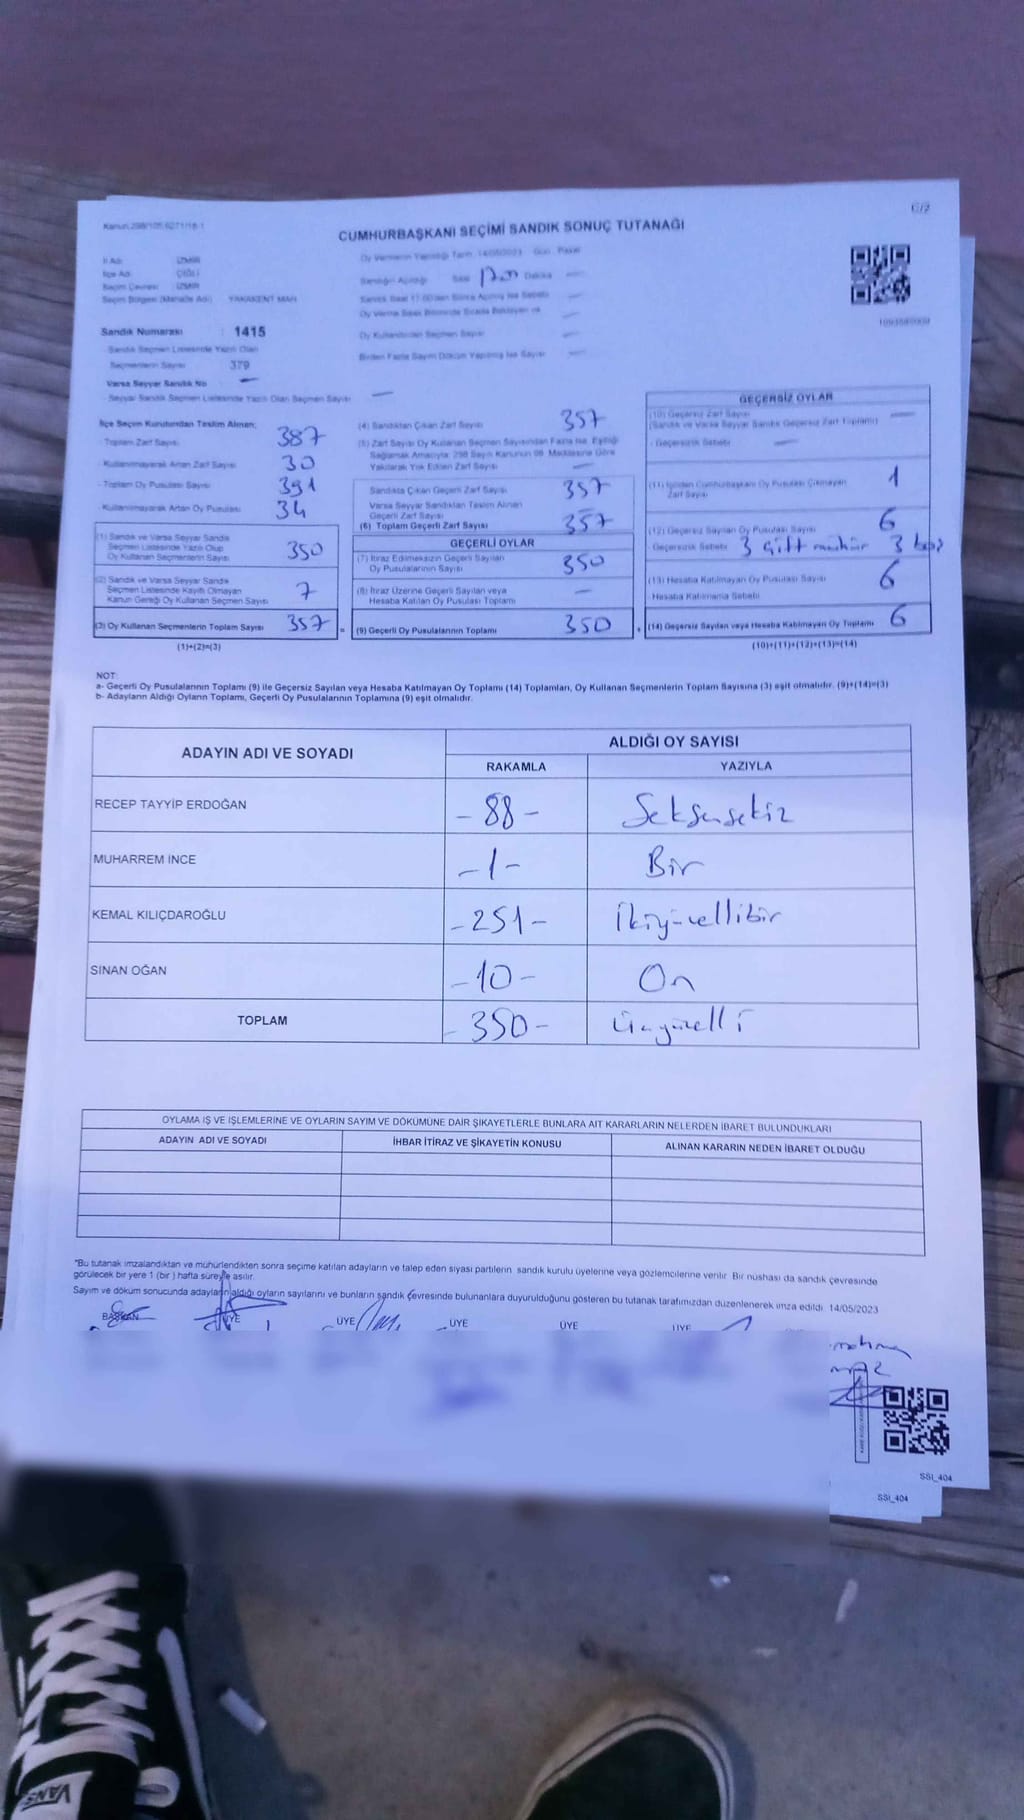 C/2
Kanun:298/105,6271/16-1
CUMHURBAŞKANI SEÇİMİ SANDIK SONUÇ TUTANAĞI
İl Adı İZMİR
İlçe Adı ÇİĞLİ
Seçim Çevresi İZMİR
Seçim Bölgesi (Mahalle Adı) YAKAKENT MAH
Sandık Numarası : 1415
Sandık Seçmen Listesinde Yazılı Olan
Seçmenlerin Sayısı 379
Varsa Seyyar Sandık No —
Seyyar Sandık Seçmen Listesinde Yazılı Olan Seçmen Sayısı —
Oy Vermenin Yapıldığı Tarih 14/05/2023 Gün Pazar
Sandığın Açıldığı Saat Dakika —
Sandık Saat 17.00'den Sonra Açılmış İse Sebebi —
Oy Verme Saati Bitiminde Sırada Bekleyen ve
Oy Kullandırılan Seçmen Sayısı —
Birden Fazla Sayım Döküm Yapılmış İse Sayısı —
İlçe Seçim Kurulundan Teslim Alınan;
- Toplam Zarf Sayısı 387
- Kullanılmayarak Artan Zarf Sayısı 30
- Toplam Oy Pusulası Sayısı 391
- Kullanılmayarak Artan Oy Pusulası 34
(1) Sandık ve Varsa Seyyar Sandık
Seçmen Listesinde Yazılı Olup
Oy Kullanan Seçmenlerin Sayısı 350
(2) Sandık ve Varsa Seyyar Sandık
Seçmen Listesinde Kayıtlı Olmayan
Kanun Gereği Oy Kullanan Seçmen Sayısı 7
(3) Oy Kullanan Seçmenlerin Toplam Sayısı 357
(1)+(2)=(3)
(4) Sandıktan Çıkan Zarf Sayısı 357
(5) Zarf Sayısı Oy Kullanan Seçmen Sayısından Fazla İse, Eşitliği
Sağlamak Amacıyla 298 Sayılı Kanunun 98. Maddesine Göre
Yakılarak Yok Edilen Zarf Sayısı —
Sandıkta Çıkan Geçerli Zarf Sayısı 357
Varsa Seyyar Sandıktan Teslim Alınan
Geçerli Zarf Sayısı —
(6) Toplam Geçerli Zarf Sayısı 357
GEÇERLİ OYLAR
(7) İtiraz Edilmeksizin Geçerli Sayılan
Oy Pusulalarının Sayısı 350
(8) İtiraz Üzerine Geçerli Sayılan veya
Hesaba Katılan Oy Pusulası Toplamı —
= (9) Geçerli Oy Pusulalarının Toplamı 350
GEÇERSİZ OYLAR
(10) Geçersiz Zarf Sayısı
(Sandık ve Varsa Seyyar Sandık Geçersiz Zarf Toplamı) —
- Geçersizlik Sebebi —
(11) İçinden Cumhurbaşkanı Oy Pusulası Çıkmayan
Zarf Sayısı 1
(12) Geçersiz Sayılan Oy Pusulası Sayısı 6
Geçersizlik Sebebi 3 çift mühür 3 boş
(13) Hesaba Katılmayan Oy Pusulası Sayısı 6
Hesaba Katılmama Sebebi
+ (14) Geçersiz Sayılan veya Hesaba Katılmayan Oy Toplamı 6
(10)+(11)+(12)+(13)=(14)
NOT:
a- Geçerli Oy Pusulalarının Toplamı (9) ile Geçersiz Sayılan veya Hesaba Katılmayan Oy Toplamı (14) Toplamları, Oy Kullanan Seçmenlerin Toplam Sayısına (3) eşit olmalıdır. (9)+(14)=(3)
b- Adayların Aldığı Oyların Toplamı, Geçerli Oy Pusulalarının Toplamına (9) eşit olmalıdır.
ADAYIN ADI VE SOYADI ALDIĞI OY SAYISI
RAKAMLA YAZIYLA
RECEP TAYYİP ERDOĞAN -88- Seksensekiz
MUHARREM İNCE -1- Bir
KEMAL KILIÇDAROĞLU -251- İkiyüzellibir
SİNAN OĞAN -10- On
TOPLAM -350- Üçyüzelli
OYLAMA İŞ VE İŞLEMLERİNE VE OYLARIN SAYIM VE DÖKÜMÜNE DAİR ŞİKAYETLERLE BUNLARA AİT KARARLARIN NELERDEN İBARET BULUNDUKLARI
ADAYIN ADI VE SOYADI İHBAR İTİRAZ VE ŞİKAYETİN KONUSU ALINAN KARARIN NEDEN İBARET OLDUĞU
*Bu tutanak imzalandıktan ve mühürlendikten sonra seçime katılan adayların ve talep eden siyasi partilerin sandık kurulu üyelerine veya gözlemcilerine verilir. Bir nüshası da sandık çevresinde
görülecek bir yere 1 (bir ) hafta süreyle asılır.
Sayım ve döküm sonucunda adayların aldığı oyların sayılarını ve bunların sandık çevresinde bulunanlara duyurulduğunu gösteren bu tutanak tarafımızdan düzenlenerek imza edildi. 14/05/2023
BAŞKAN ÜYE ÜYE ÜYE ÜYE ÜYE
SSI_404
SSI_404
VANS